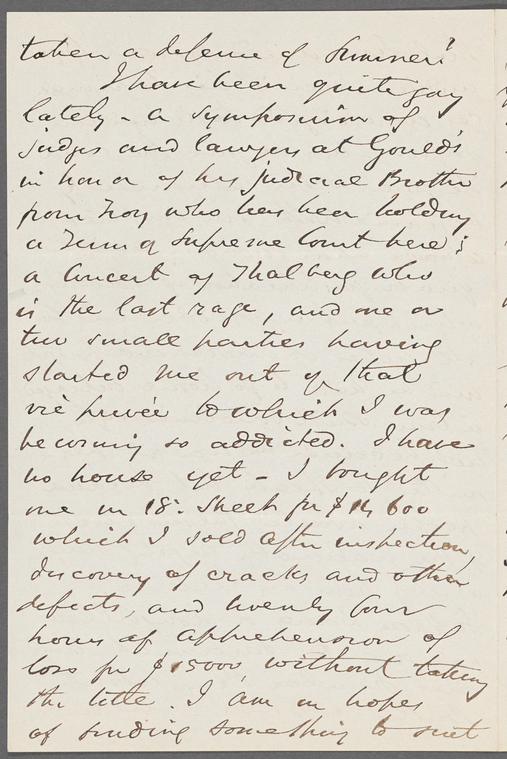 taken a defense of Sumner!
I have been quite gay
lately - a symposium of
judges and lawyers at Gould's
in honor of his judicial Brother
from Troy who has been holding
a Term of Supreme Court here;
a Concert of Thalberg who
is the last rage, and one or
two small parties having
started me out of that
vie privée to which I was
becoming so addicted. I have
no house yet - I bought
one in 18th Street for $14,600
which I sold after inspection,
discovery of cracks and other
defects, and twenty four
hours of apprehension of
loss for $15000 without taking
the title. I am in hopes
of finding something to suit